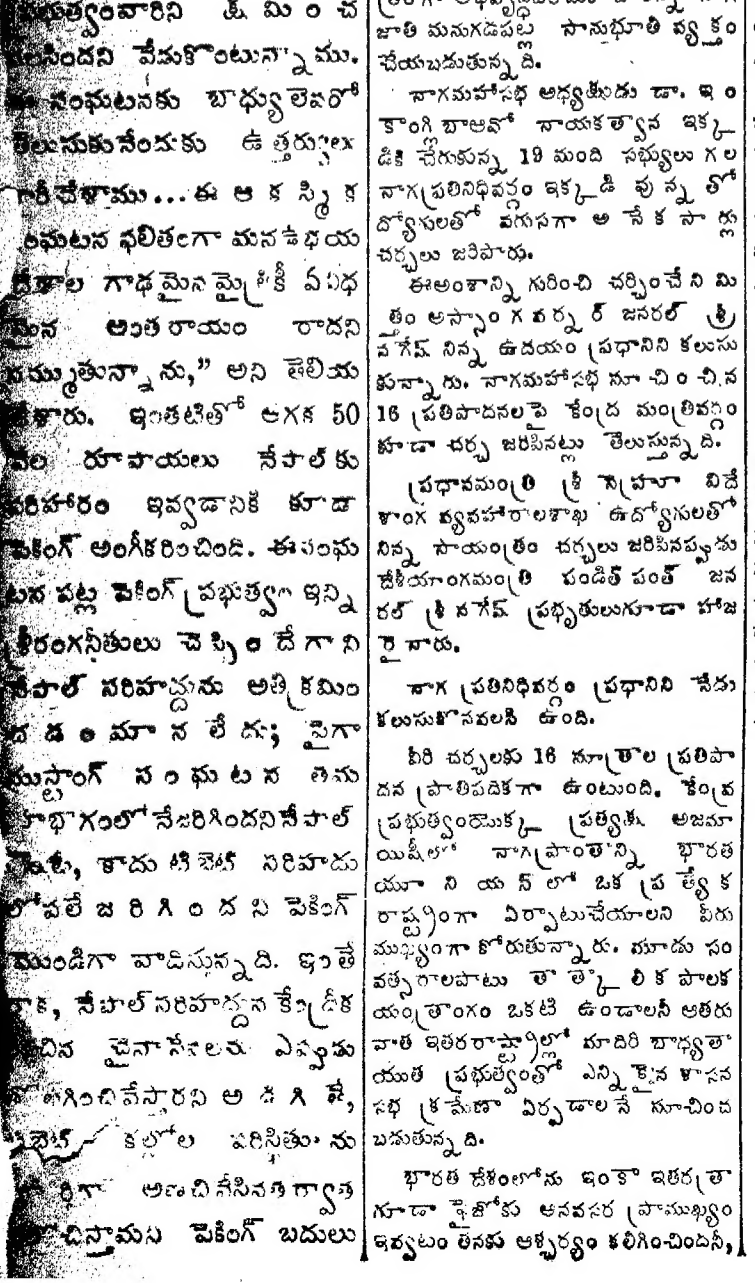 ప్రభుత్వంవారిని క్షమించ
వలసిందని వేడుకొంటున్నాము.
ఈ సంఘటనకు బాధ్యులెవరో
తెలుసుకునేందుకు ఉత్తర్వులు
జారీచేశాము... ఈ ఆకస్మిక
సంఘటన ఫలితంగా మనఉభయ
దేశాల గాఢమైనమైత్రికి ఏవిధ
మైన అంతరాయం రాదని
నమ్ముతున్నాను,” అని తెలియ
చేశారు. ఇంతటితో ఆగక 50
వేల రూపాయలు నేపాల్‌కు
పరిహారం ఇవ్వడానికి కూడా
పెకింగ్ అంగీకరించింది. ఈసంఘ
టన పట్ల పెకింగ్ ప్రభుత్వం ఇన్ని
శ్రీరంగనీతులు చెప్పిందేగాని
నేపాల్ సరిహద్దును అతిక్రమిం
చడం మానలేదు; పైగా
ముస్టాంగ్ సంఘటన తమ
భూభాగంలోనేజరిగిందనినేపాల్
కాదు టిబెట్ సరిహద్దు
లోపలే జరిగిందని పెకింగ్
మొండిగా వాదిస్తున్నది. ఇంతే
కాక, నేపాల్‌సరిహద్దున కేంద్రీక
రించిన చైనాసేనలను ఎప్పుడు
తొలగించివేస్తారని అడిగితే,
టిబెట్ కల్లోల పరిస్థితులను
పూర్తిగా అణచివేసినతర్వాత
ఆలోచిస్తామని పెకింగ్ బదులు
జాతి మనుగడపట్ల సానుభూతి వ్యక్తం
చేయబడుతున్నది.
నాగమహాసభ అధ్యక్షుడు డా. ఇం
కాంగ్లిబాఆవో నాయకత్వాన ఇక్క
డికి చేరుకున్న 19 మంది సభ్యులు గల
నాగప్రతినిధివర్గం ఇక్కడి వున్నతో
ద్యోగులతో వరుసగా అనేకసార్లు
చర్చలు జరిపారు.
ఈఅంశాన్ని గురించి చర్చించేనిమి
త్తం అస్సాం గవర్నర్ జనరల్ శ్రీ
నగేష్ నిన్న ఉదయం ప్రధానిని కలుసు
కున్నారు. నాగమహాసభ సూచించిన
16 ప్రతిపాదనలపై కేంద్ర మంత్రివర్గం
కూడా చర్చ జరిపినట్లు తెలుస్తున్నది.
ప్రధానమంత్రి శ్రీ నెహ్రూ విదే
శాంగ వ్యవహారాలశాఖ ఉద్యోగులతో
నిన్న సాయంత్రం చర్చలు జరిపినప్పుడు
దేశీయాంగమంత్రి పండిత్ పంత్ జన
రల్ శ్రీ నగేష్ ప్రభృతులుగూడా హాజ
రైనారు.
నాగ ప్రతినిధివర్గం ప్రధానిని నేడు
కలుసుకొనవలసి ఉంది.
వీరి చర్చలకు 16 సూత్రాల ప్రతిపా
దన ప్రాతిపదికగా ఉంటుంది. కేంద్ర
ప్రభుత్వంయొక్క ప్రత్యేక అజమా
యిషీలో నాగప్రాంతాన్ని భారత
యూనియన్‌లో ఒక ప్రత్యేక
రాష్ట్రంగా ఏర్పాటుచేయాలని వీరు
ముఖ్యంగా కోరుతున్నారు. మూడు సం
వత్సరాలపాటు తాత్కాలిక పాలక
యంత్రాంగం ఒకటి ఉండాలనీ ఆతరు
వాత ఇతరరాష్ట్రాల్లో మాదిరి బాధ్యతా
యుత ప్రభుత్వంతో ఎన్నికైన శాసన
సభ క్రమేణా ఏర్పడాలనే సూచించ
బడుతున్నది.
భారత దేశంలోను ఇంకా ఇతరత్రా
గూడా ఫైజోకు అనవసర ప్రాముఖ్యం
ఇవ్వటం తనకు ఆశ్చర్యం కలిగించిందనీ,